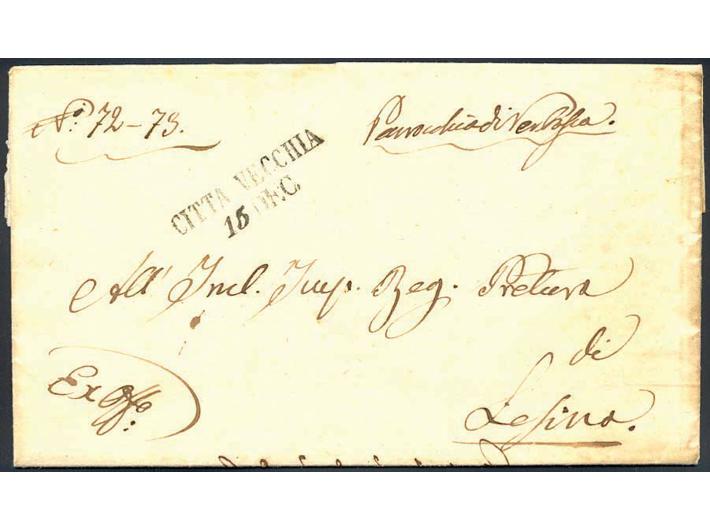 N.º 72-73.
Parrocchia di Verbossca.
CITTA VECCHIA
15 DEC
All' Incl. Imp. Reg. Pretura
di
Lesina.
Ex Offo.